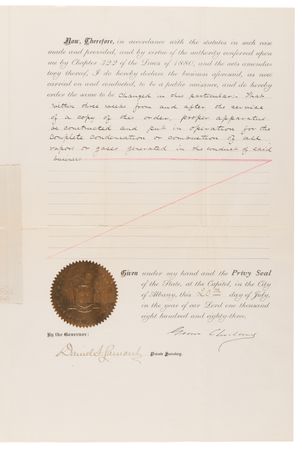 Now, Therefore, in accordance with the statutes in such case
made and provided, and by virtue of the authority conferred upon
me by Chapter 322 of the Laws of 1880, and the acts amenda-
tory thereof, I do hereby declare the business aforesaid, as now
carried on and conducted, to be a public nuisance, and do hereby
order the same to be changed in this particular: That
within three weeks from and after the service
of a copy of this order, proper apparatus
be constructed and put in operation for the
complete condensation or combustion of all
vapor or gases generated in the conduct of said
business
Given under my hand and the Privy Seal
of the State, at the Capitol, in the City
of Albany, this 20th day of July,
in the year of our Lord one thousand
eight hundred and eighty-three.
Grover Cleveland
By the Governor:
Daniel S. Lamont
Private Secretary.